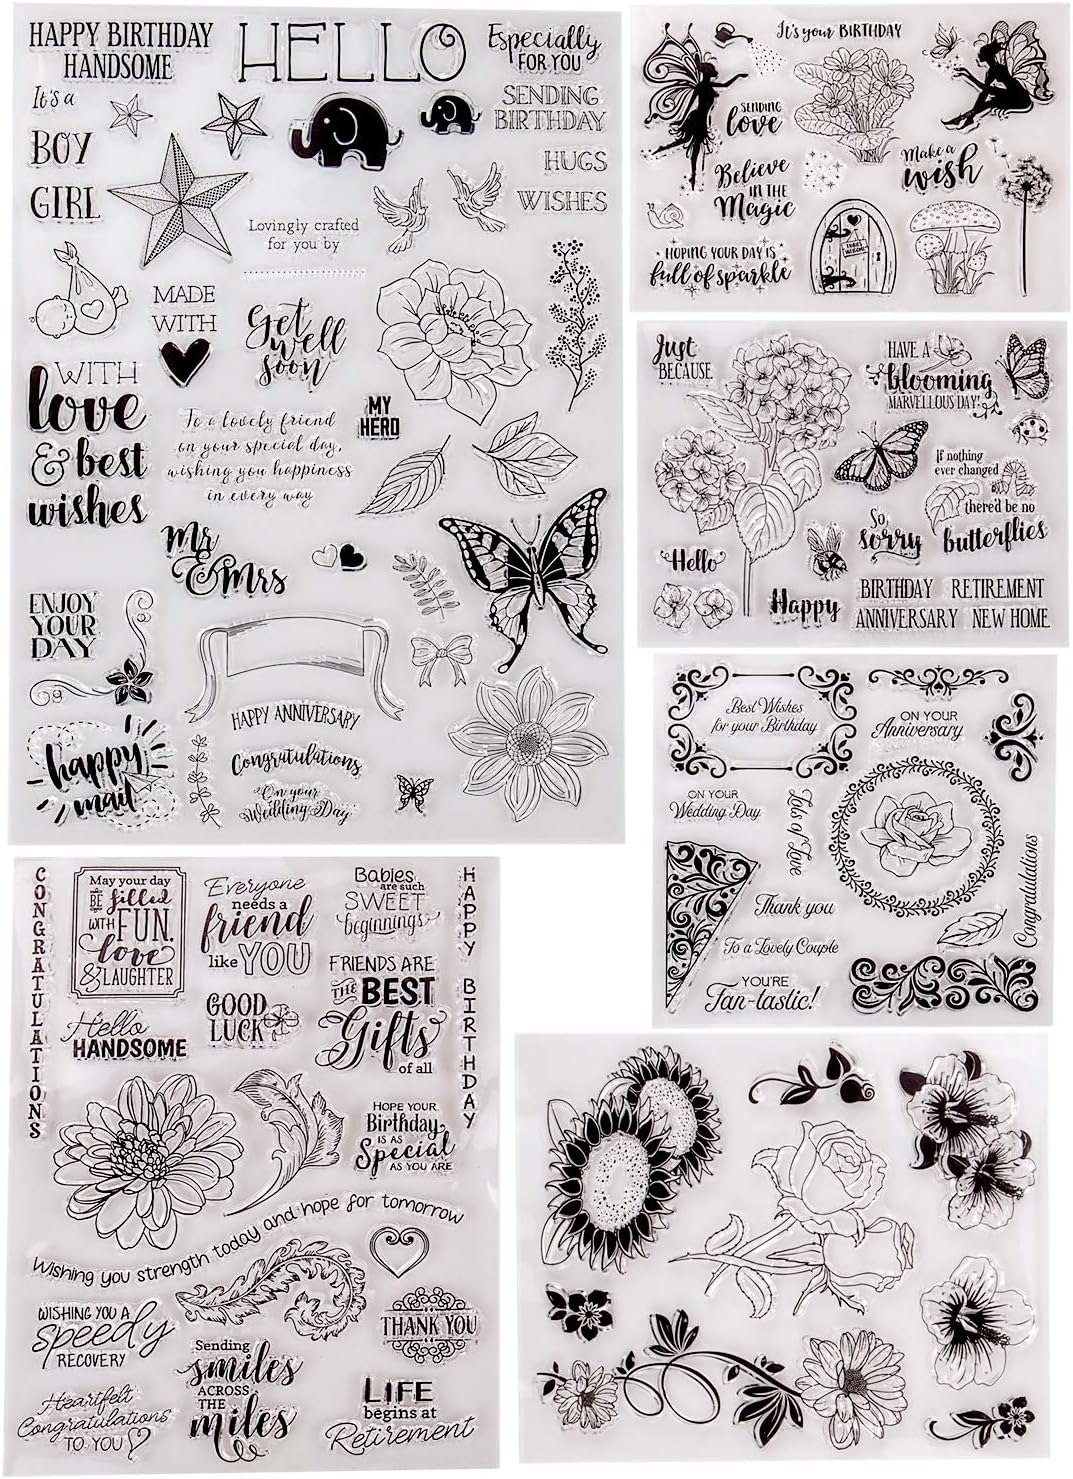 HAPPY BIRTHDAY
HANDSOME
HELLO
Especially
FOR YOU
It's a
BOY
GIRL
SENDING
BIRTHDAY
HUGS
WISHES
Lovingly crafted
for you by
MADE
WITH
Get
well
soon
WITH
love
& best
wishes
To a lovely friend
on your special day,
wishing you happiness
in every way
MY
HERO
Mr
& Mrs
ENJOY
YOUR
DAY
HAPPY ANNIVERSARY
Congratulations
On your
Wedding Day
happy
mail
It's your BIRTHDAY
SENDING
love
Believe
IN THE
Magic
Make a
wish
HOPING YOUR DAY IS
full of sparkle
FAIRIES
WELCOME
Just
BECAUSE
HAVE A
blooming
MARVELLOUS DAY!
If nothing
ever changed
there'd be no
butterflies
So
sorry
Hello
Happy
BIRTHDAY RETIREMENT
ANNIVERSARY NEW HOME
Best Wishes
for your Birthday
ON YOUR
Anniversary
ON YOUR
Wedding Day
Lots of Love
Thank you
To a Lovely Couple
YOU'RE
Fan-tastic!
Congratulations
CONGRATULATIONS
May your day
BE filled
WITH FUN,
love
& LAUGHTER
Everyone
needs a
friend
like YOU
Babies
are such
SWEET
beginnings
HAPPY BIRTHDAY
Hello
HANDSOME
GOOD
LUCK
FRIENDS ARE
THE BEST
Gifts
of all
HOPE YOUR
Birthday
IS AS
Special
AS YOU ARE
Wishing you strength today and hope for tomorrow
WISHING YOU A
speedy
RECOVERY
Sending
smiles
ACROSS
THE
miles
THANK YOU
Heartfelt
Congratulations
TO YOU
LIFE
begins at
Retirement